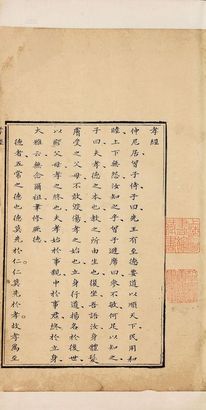 孝經
仲尼居曾子侍子曰先王有至德要道以順天下民用和
睦上下無怨汝知之乎曾子避席曰參不敏何足以知之
子曰夫孝德之本也教之所由生也復坐吾語汝身體髮
膚受之父母不敢毀傷孝之始也立身行道揚名於後世
以顯父母孝之終也夫孝始於事親中於事君終於立身
大雅云無念爾祖聿脩厥德
德者五常之德也德莫先於仁仁莫先於孝故孝爲至